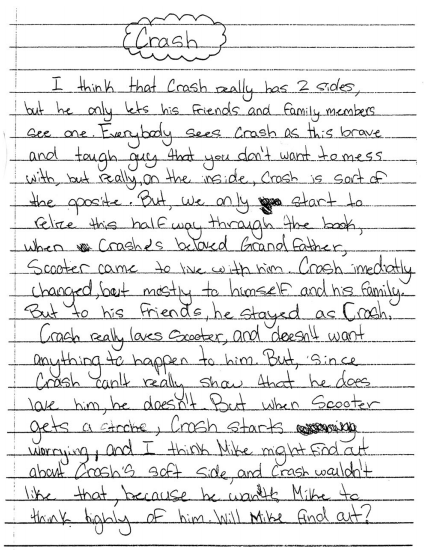 Crash
I think that Crash really has 2 sides,
but he only lets his friends and family members
see one. Everybody sees Crash as this brave
and tough guy that you don't want to mess
with, but really, on the inside, Crash is sort of
the oposite. But, we only start to
relize this half way through the book,
when Crashe's beloved Grand Father,
Scooter came to live with him. Crash imediatly
changed, but mostly to himself and his family.
But to his friends, he stayed as Crash.
Crash really loves Scooter, and doesn't want
anything to happen to him. But, since
Crash can't really show that he does
love him, he doesn't. But when Scooter
gets a stroke, Crash starts
worrying, and I think Mike might find out
about Crash's soft side, and Crash wouldn't
like that, because he wants Mike to
think highly of him. Will Mike find out?